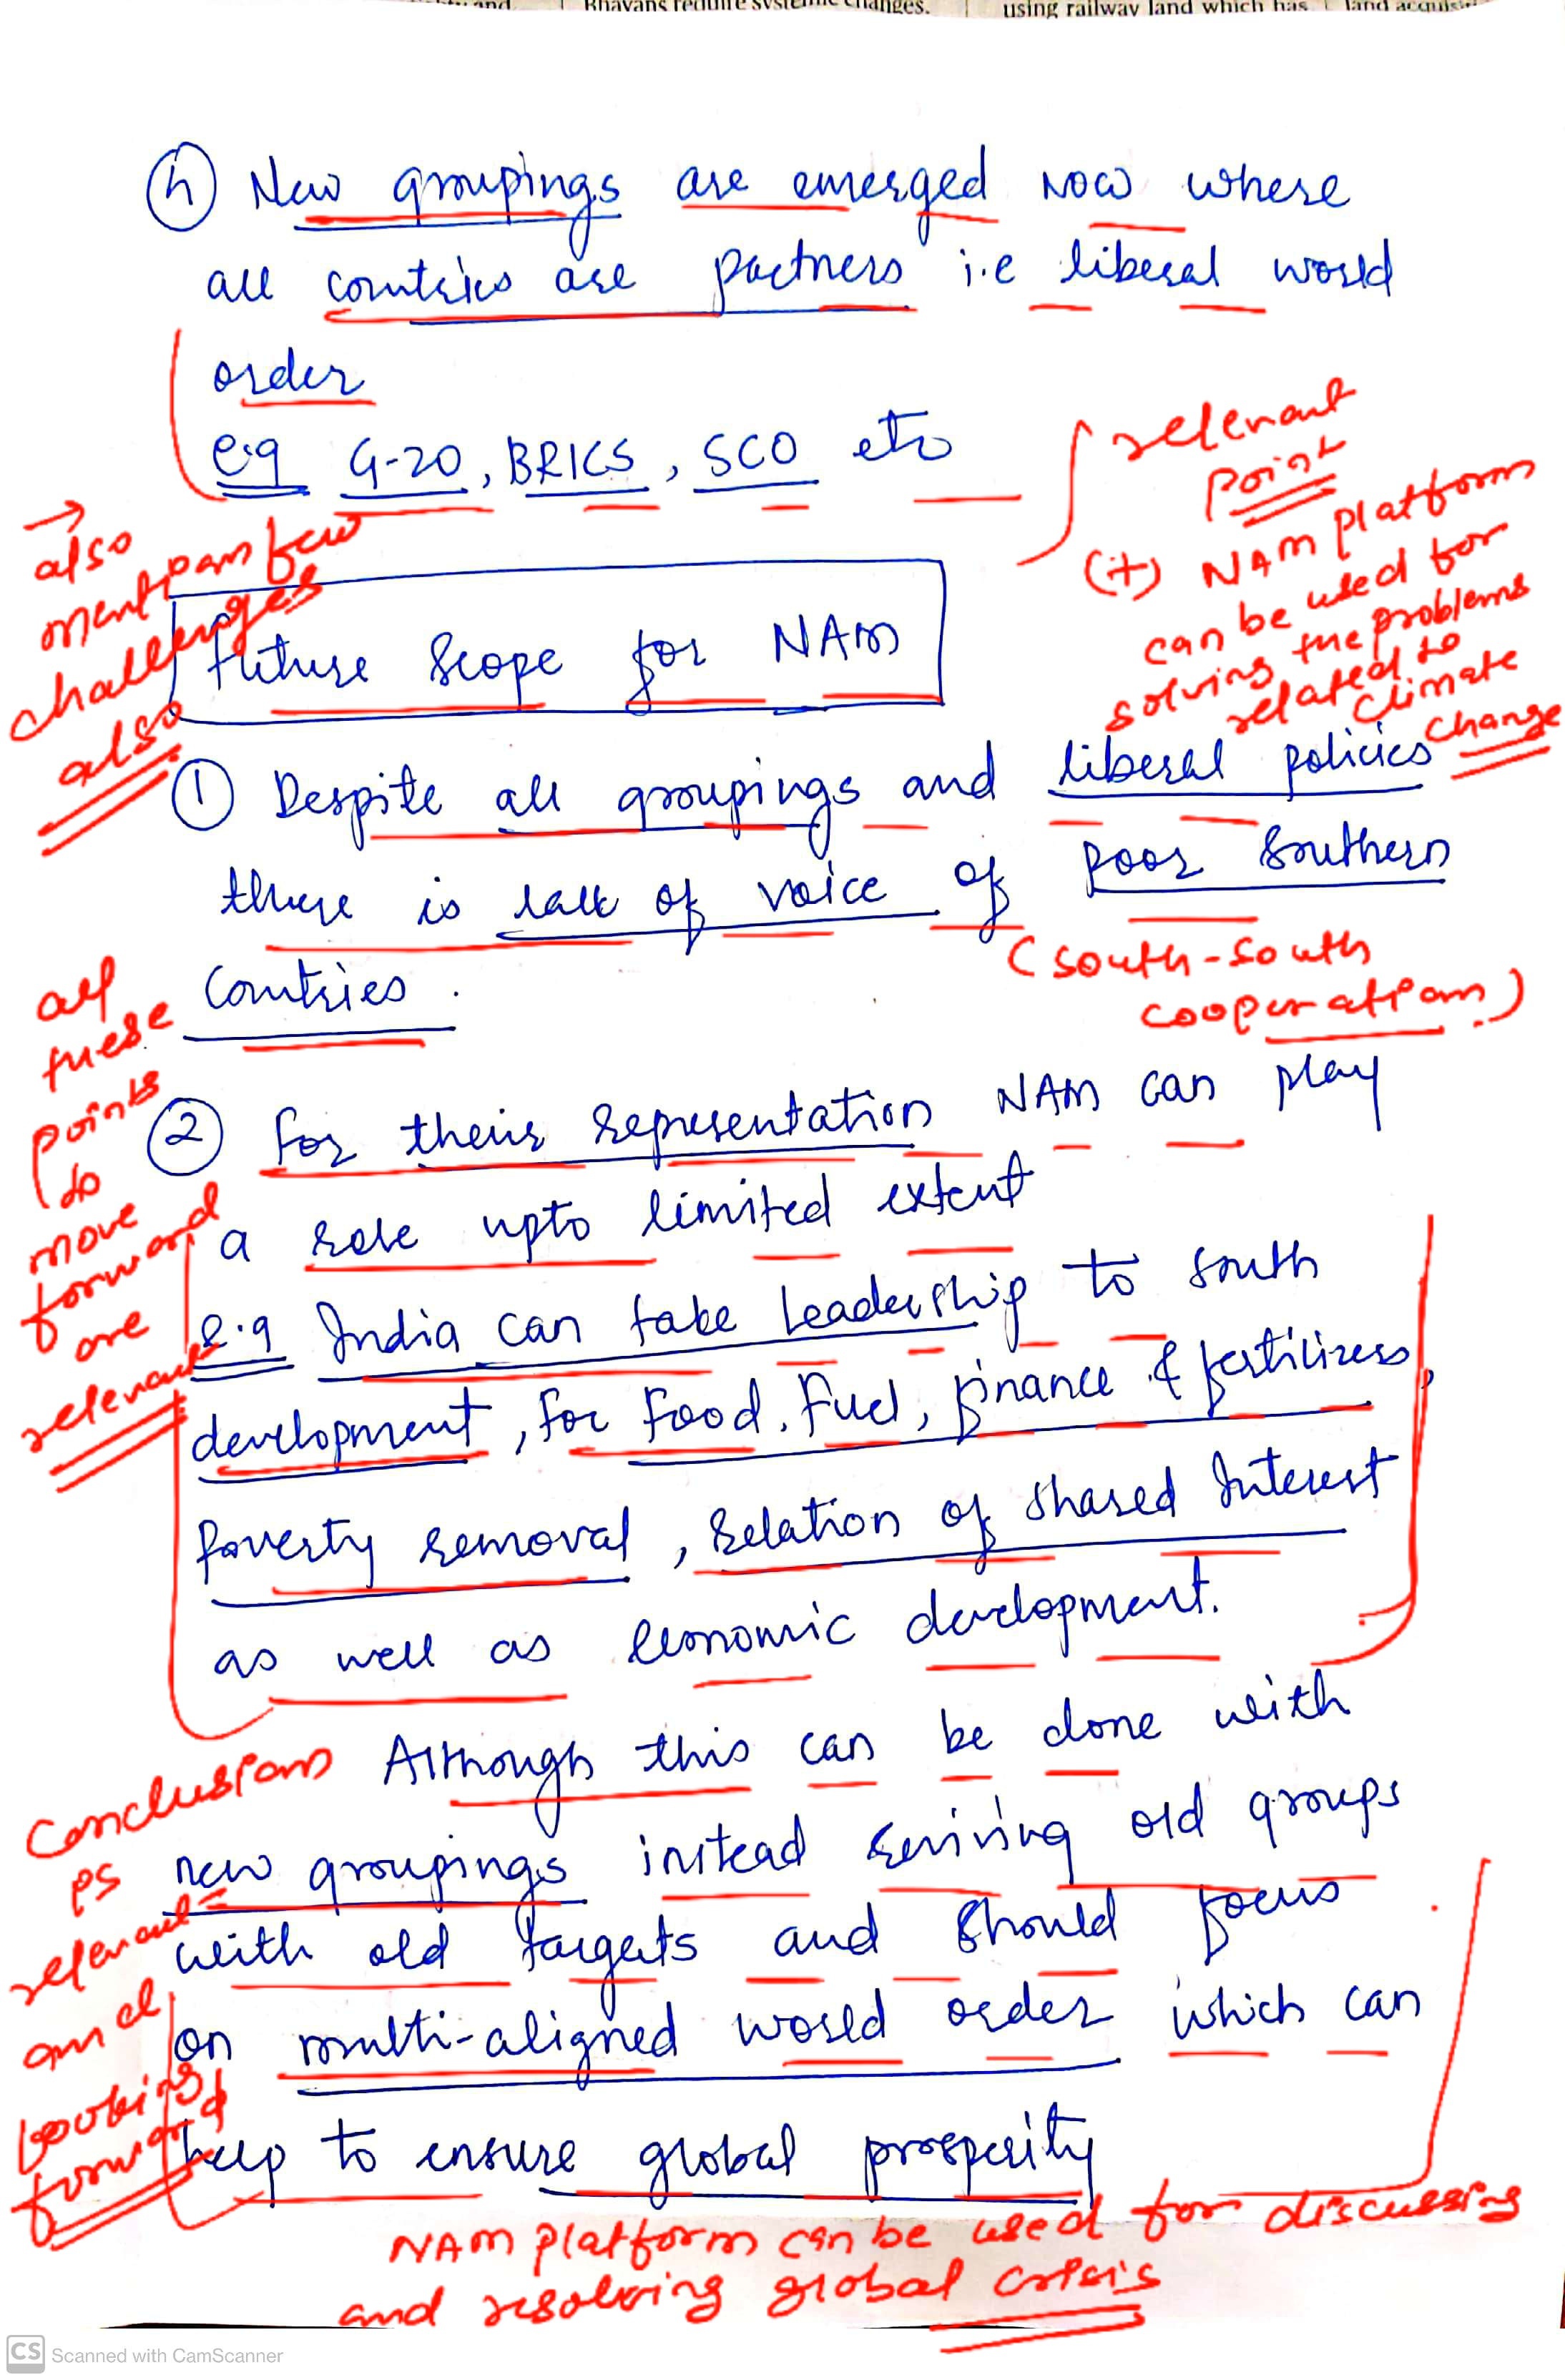 Bhavans require systemic changes.
using railway land which has
④ New groupings are emerged now where
all countries are partners i.e liberal world
order
e.g G-20, BRICS, SCO etc
relevant
point
(+) NAM platform
can be used for
solving the problems
related to
climate
change
→
also
mention few
challenges
also
Future Scope for NAM
① Despite all groupings and liberal policies
there is lack of voice of poor southern
countries.
(south-south
cooperation)
all
these
points
to
move
forward
are
relevant
② for their representation NAM can play
a role upto limited extent
e.g India can take leadership to south
development, for Food, Fuel, finance & fertilizers,
Poverty removal, relation of shared Interest
as well as economic development.
Conclusion
is
relevant
and
looking
forward
Although this can be done with
new groupings instead reviving old groups
with old targets and should focus
on multi-aligned world order which can
help to ensure global prosperity
NAM platform can be used for discussing
and resolving global crisis
CS Scanned with CamScanner